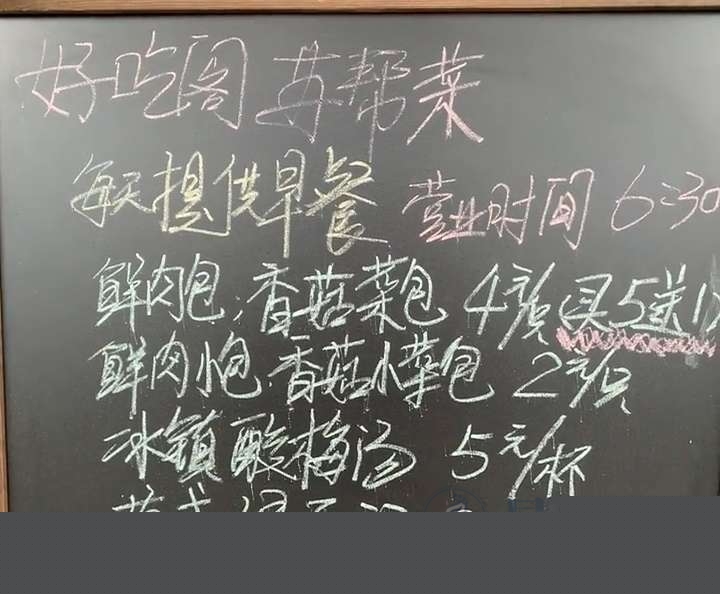 好吃阁 苏帮菜
每天提供早餐 营业时间 6:30
鲜肉包,香菇菜包 4元/只 买5送1
鲜肉小包.香菇小菜包 2元/只
冰镇酸梅汤 5元/杯